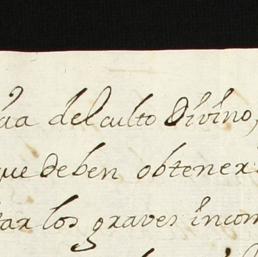 del culto Divino,
que deben obtener
tar los graves incon